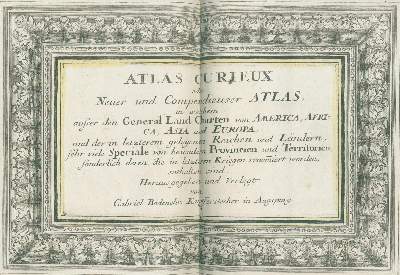 ATLAS CURIEUX
oder
Neuer und Compendieuser ATLAS,
in welchem
ausser den General Land Charten von AMERICA, AFRI-
CA, ASIA und EUROPA,
und der in letzterem gelegenen Reichen und Ländern,
sehr viele Speciale von besondern Provincien und Territorien
sonderlich deren, die in letztern Kriegen renomiert worden,
enthalten sind.
Herausgegeben und Verlegt
von
Gabriel Bodenehr Kupfferstecher in Augspurg.